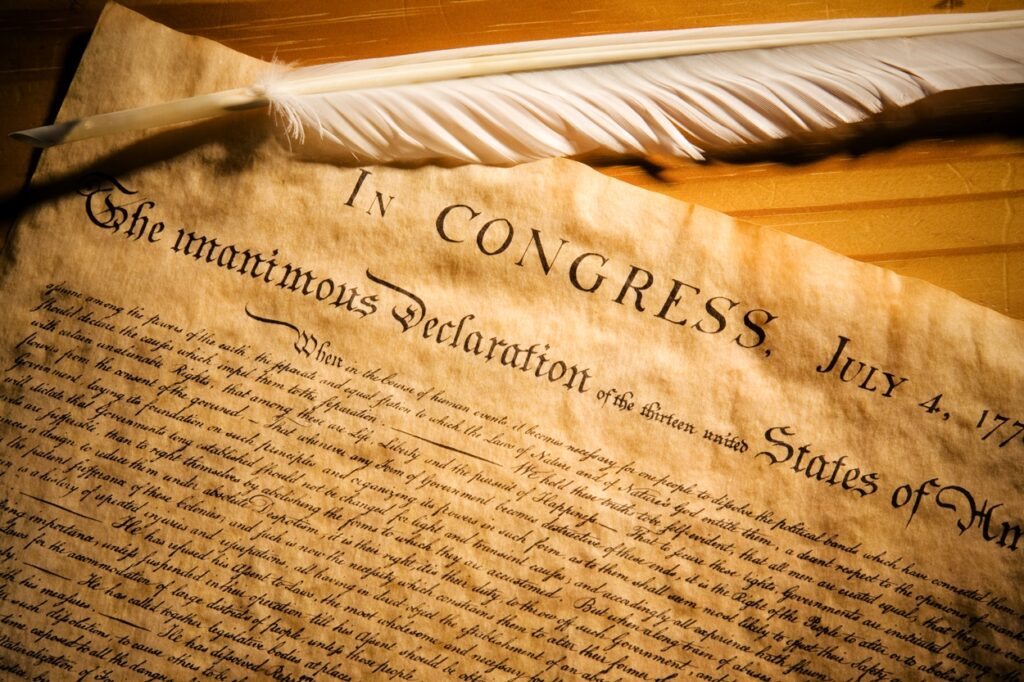 In CONGRESS, July 4, 177
The unanimous Declaration of the thirteen united States of Am
When in the Course of human events it becomes necessary for one people to dissolve the political bands which have connected them
assume among the powers of the earth, the separate and equal station to which the Laws of Nature and of Nature's God entitle them, a decent respect to the opinions of
should declare the causes which impel them to the separation. We hold these truths to be self-evident, that all men are created equal, that they are
with certain unalienable Rights, that among these are Life, Liberty and the pursuit of Happiness. That to secure these rights, Governments are instituted among
powers from the consent of the governed, That whenever any Form of Government becomes destructive of these ends, it is the Right of the People to alter or to abolish
Government, laying its foundation on such principles and organizing its powers in such form, as to them shall seem most likely to effect their Safety
will dictate that Governments long established should not be changed for light and transient causes; and accordingly all experience hath shewn
are sufferable, than to right themselves by abolishing the forms to which they are accustomed. But when a long train of abuses
a design to reduce them under absolute Despotism, it is their right, it is their duty, to throw off such Government,
patient sufferance of these Colonies; and such is now the necessity which constrains them to alter their former
is a history of repeated injuries and usurpations, all having in direct object the establishment
He has refused his Assent to Laws, the most wholesome and necessary
importance, unless suspended in their operation till his Assent should be
for the accommodation of large districts of people, unless those people
He has called together legislative bodies at places
with his measures. He has dissolved Repres
such dissolutions, to cause others to be
exposed to all the dang
Naturalization of